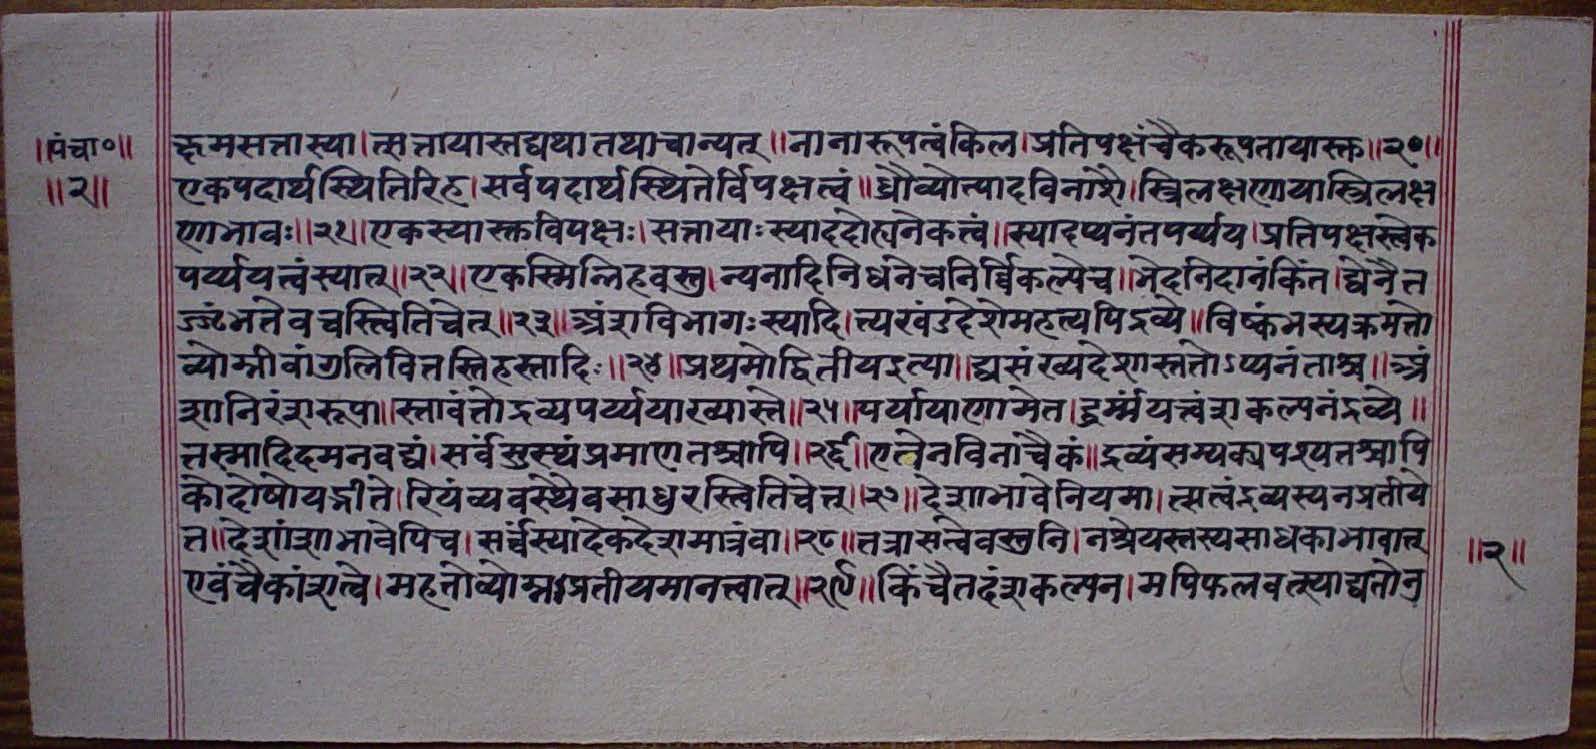 ॥पंचा०॥
॥२॥
न्हमसत्तास्या।त्सत्तायास्तद्यथातथाचान्यत्॥नानारूपत्वंकिल।प्रतिपक्षंचैकरूपतायास्तु॥२०॥
एकपदार्थस्थितिरिह।सर्वपदार्थस्थितेर्विपक्षत्वं॥ध्रौव्योत्पादविनाशै।स्त्रिलक्षणायास्त्रिलक्ष
णाभावः॥२१॥एकस्यास्तुविपक्षः।सत्तायाःस्याददोह्यनेकत्त्वं॥स्यादप्यनंतपर्य्यय।प्रतिपक्षस्त्वेक
पर्य्ययत्त्वंस्यात्॥२२॥एकस्मिन्निहवस्तु।न्यनादिनिधनेचनिर्व्विकल्पेच॥भेदनिदानंकिंत।द्येनैत
ज्जृंभतेवचस्त्वितिचेत्॥२३॥अंशविभागःस्यादि।त्यखंडदेशेमहत्यपिद्रव्ये॥विष्कंभस्यक्रमतो
व्योम्नीवांगुलिवितस्तिहस्तादिः॥२४॥प्रथमोद्वितीयइत्या॥द्यसंख्यदेशास्ततोऽप्यनंताश्च॥अं
शानिरंशरूपा॥स्तावंतोद्रव्यपर्य्ययाख्यास्ते॥२५॥पर्यायाणामेत।द्धर्म्मंयत्त्वंशकल्पनंद्रव्ये॥
तस्मादिदमनवद्यं।सर्वंसुस्थंप्रमाणतश्चापि॥२६॥एतेनविनाचैकं॥द्रव्यंसम्यक्प्रपश्यतश्चापि
कोदोषोयद्भीते।रियंव्यवस्थैवसाधुरस्त्वितिचेत्॥२७॥देशाभावेनियमा।त्सत्वंद्रव्यस्यनप्रतीये
त॥देशांशाभावेपिच।सर्व्वंस्यादेकदेशमात्रंवा॥२८॥तत्रासत्वेवस्तुनि।नश्रेयस्तस्यसाधकाभावात्
एवंचैकांशत्वे।महतोव्योम्नःऽप्रतीयमानत्त्वात्॥२९॥किंचैतदंशकल्पन।मपिफलवत्स्याद्यतोनु
॥२॥